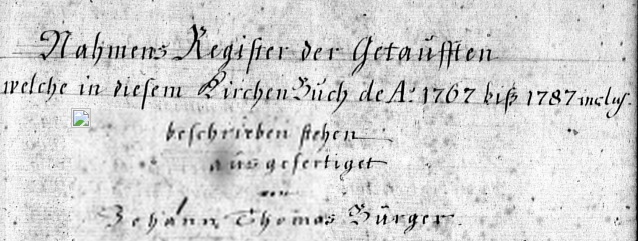 Nahmens Register der Getaufften
welche in diesem Kirchen Buch de Aº 1767 biß 1787 inclus.
beschrieben stehen
ausgefertiget
von
Johann Thomas Bürger.